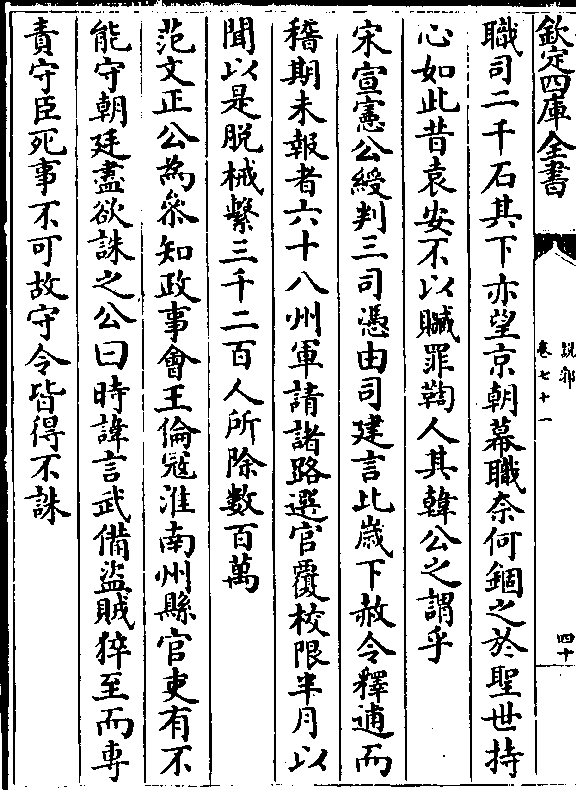 欽定四庫全書
說郛
卷七十一
四十
職司二千石其下亦望京朝幕職奈何錮之於聖世持
心如此昔袁安不以贓罪鞫人其韓公之謂乎
宋宣憲公綬判三司憑由司建言比嵗下赦令釋逋而
稽期未報者六十八州軍請諸路選官覆校限半月以
聞以是脱械繫三千二百人所除數百萬
范文正公為叅知政事會王倫寇淮南州縣官吏有不
能守朝廷盡欲誅之公曰時諱言武備盜賊猝至而専
責守臣死事不可故守令皆得不誅